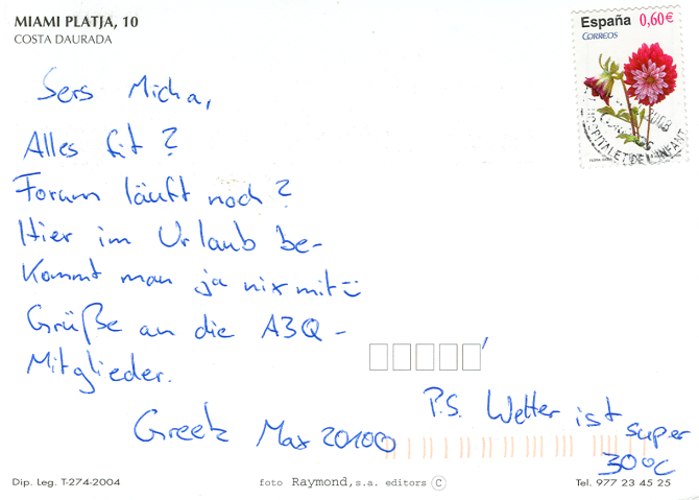 MIAMI PLATJA, 10
COSTA DAURADA
España 0,60€
CORREOS
Sers Micha,
Alles fit?
Forum läuft noch?
Hier im Urlaub be-
kommt man ja nix mit
Grüße an die A3Q-
Mitglieder.
Greetz Max20100
P.S. Wetter ist super
30°C
Dip. Leg. T-274-2004
foto Raymond, s.a. editors C
Tel. 977 23 45 25